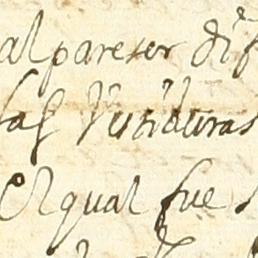 al pareser dif
las Vistiduras
el qual fue s